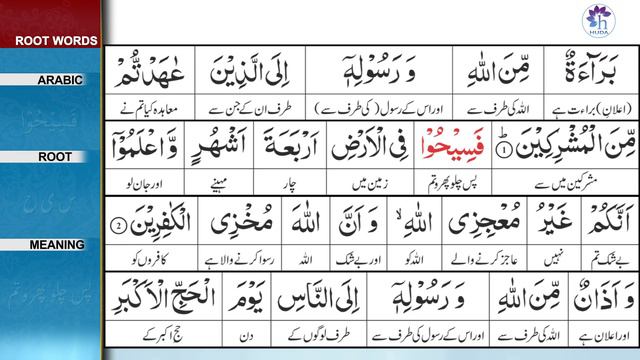 huda
HUDA
ROOT WORDS
ARABIC
فَسِيْحُوْا
ROOT
س ی ح
MEANING
پس چلو پھرو تم
بَرَآءَةٌ مِّنَ اللّٰهِ وَ رَسُوْلِهٖۤ اِلَى الَّذِيْنَ عٰهَدْتُّمْ
(اعلانِ) براءت ہے اللہ کی طرف سے اور اس کے رسول (کی طرف سے) طرف ان کے جن سے معاہدہ کیا تم نے
مِّنَ الْمُشْرِكِيْنَ ؕ ﴿1﴾ فَسِيْحُوْا فِى الْاَرْضِ اَرْبَعَةَ اَشْهُرٍ وَّاعْلَمُوْۤا
مشرکین میں سے پس چلو پھرو تم زمین میں چار مہینے اور جان لو
اَنَّكُمْ غَيْرُ مُعْجِزِى اللّٰهِ ۙ وَ اَنَّ اللّٰهَ مُخْزِى الْكٰفِرِيْنَ ﴿2﴾
بے شک تم نہیں عاجز کرنے والے اللہ کو اور بے شک اللہ رسوا کرنے والا ہے کافروں کو
وَ اَذَانٌ مِّنَ اللّٰهِ وَ رَسُوْلِهٖۤ اِلَى النَّاسِ يَوْمَ الْحَجِّ الْاَكْبَرِ
اور اعلان ہے اللہ کی طرف سے اور اس کے رسول کی طرف سے طرف لوگوں کے دن حج اکبر کے